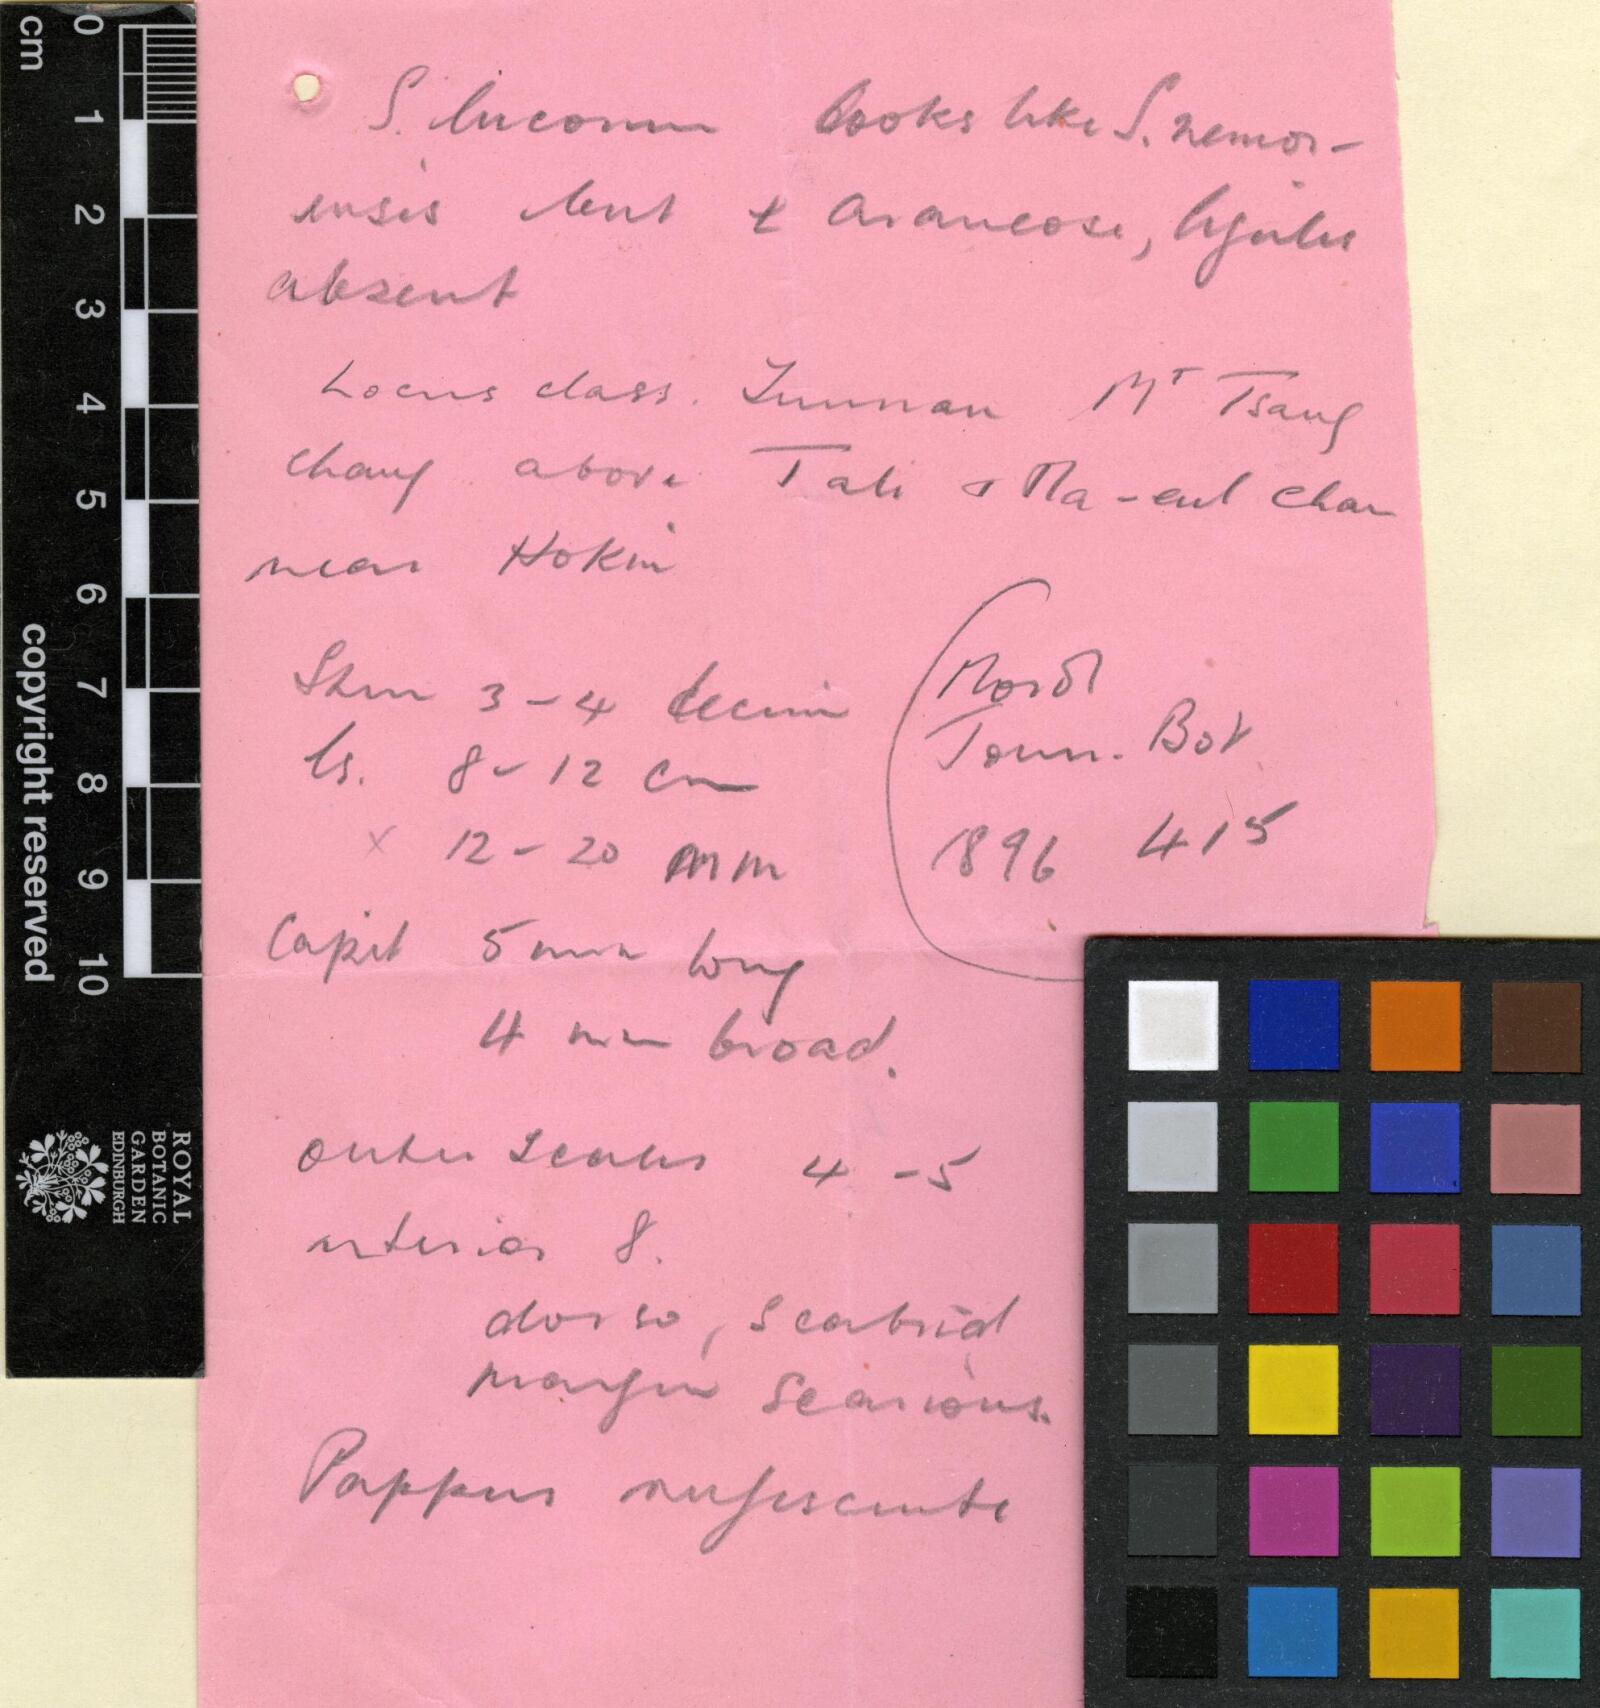 S. lucorum looks like S. nemor-
ensis but ± araneose, ligules
absent
Locus class. Yunnan Mt Tsang
chang above Tali & Ma-eul chan
near Hokin
Stem 3-4 decim
ls. 8-12 cm
x 12-20 mm
Capit 5 mm long
4 mm broad.
(Morot
Journ. Bot.
1896 415
outer scales 4-5
interior 8.
dorso, scabrid
margin scarious.
Pappus rufescente
cm
0 1 2 3 4 5 6 7 8 9 10
copyright reserved
ROYAL
BOTANIC
GARDEN
EDINBURGH